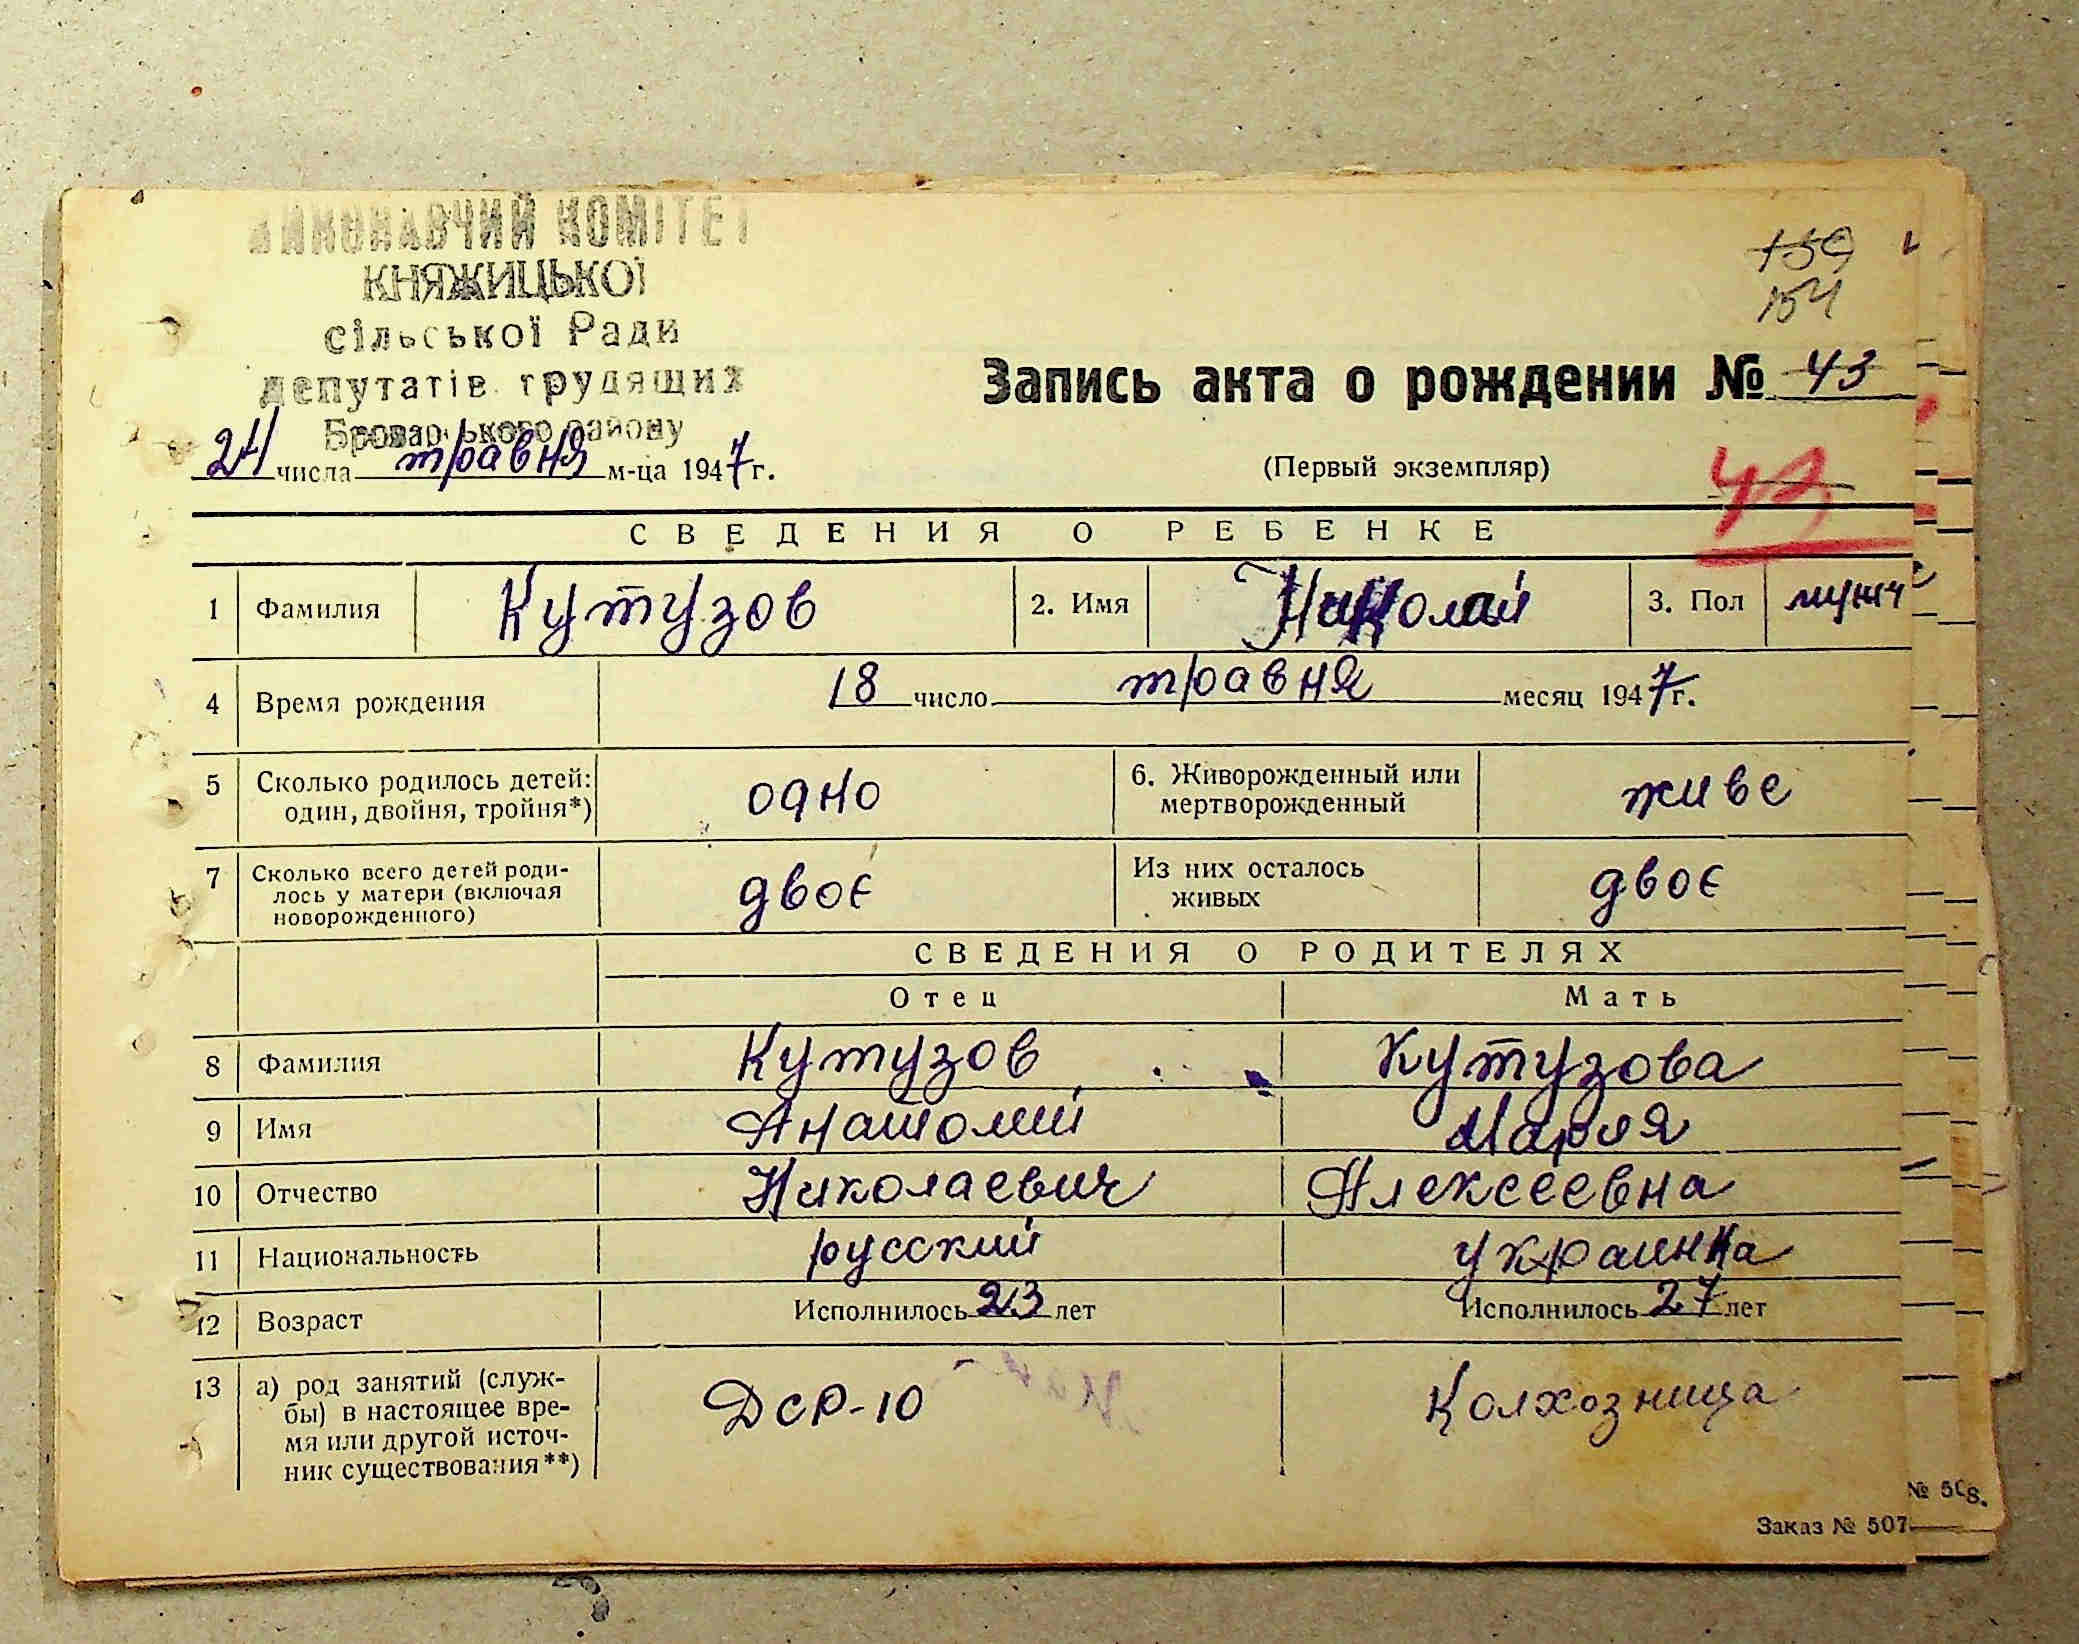 ВИКОНАВЧИЙ КОМІТЕТ
КНЯЖИЦЬКОЇ
сільської Ради
депутатів трудящих
Броварського району
159
154
Запись акта о рождении № 43
24 числа травня м-ца 1947 г.
(Первый экземпляр)
43
СВЕДЕНИЯ О РЕБЕНКЕ
1 Фамилия Кутузов 2. Имя Николай 3. Пол мужч
4 Время рождения 18 число травня месяц 1947 г.
5 Сколько родилось детей: один, двойня, тройня*) одно 6. Живорожденный или мертворожденный живе
7 Сколько всего детей роди-
лось у матери (включая
новорожденного) двоє Из них осталось живых двоє
СВЕДЕНИЯ О РОДИТЕЛЯХ
Отец Мать
8 Фамилия Кутузов Кутузова
9 Имя Анатолий Мария
10 Отчество Николаевич Алексеевна
11 Национальность русский украинка
12 Возраст Исполнилось 23 лет Исполнилось 27 лет
13 а) род занятий (служ-
бы) в настоящее вре-
мя или другой источ-
ник существования**) ДСР-10 Колхозница
№ 508.
Заказ № 507